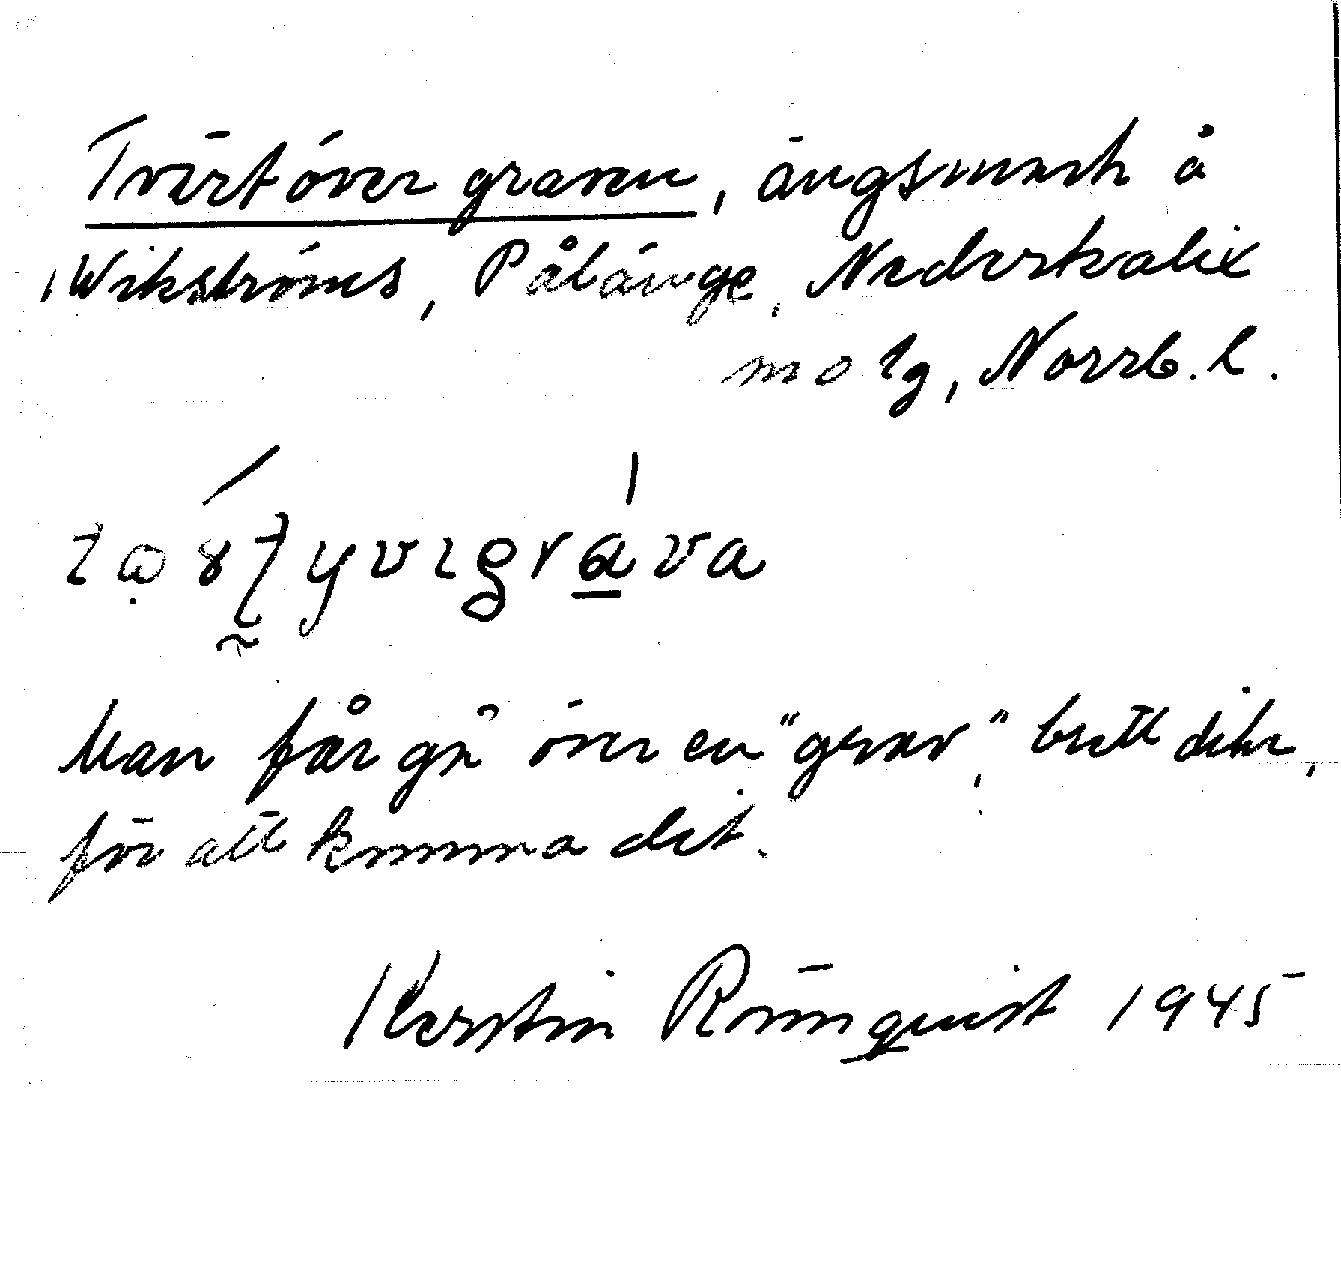 Tvärtöver graven, ängsmark å
Wikströms, Pålänge, Nederkalix
sn o tg, Norrb. l.
Man får gå över en "grav," brett dike,
för att komma dit.
Kerstin Rönnquist 1945